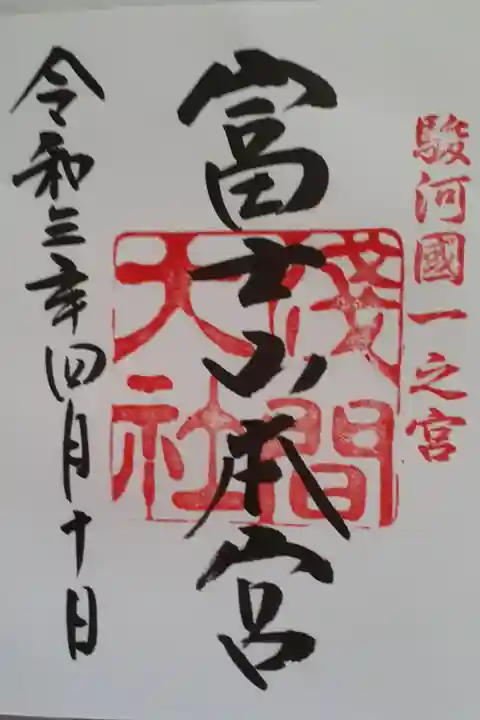 駿河國一之宮
富士山本宮
淺間大社
令和三年四月十日